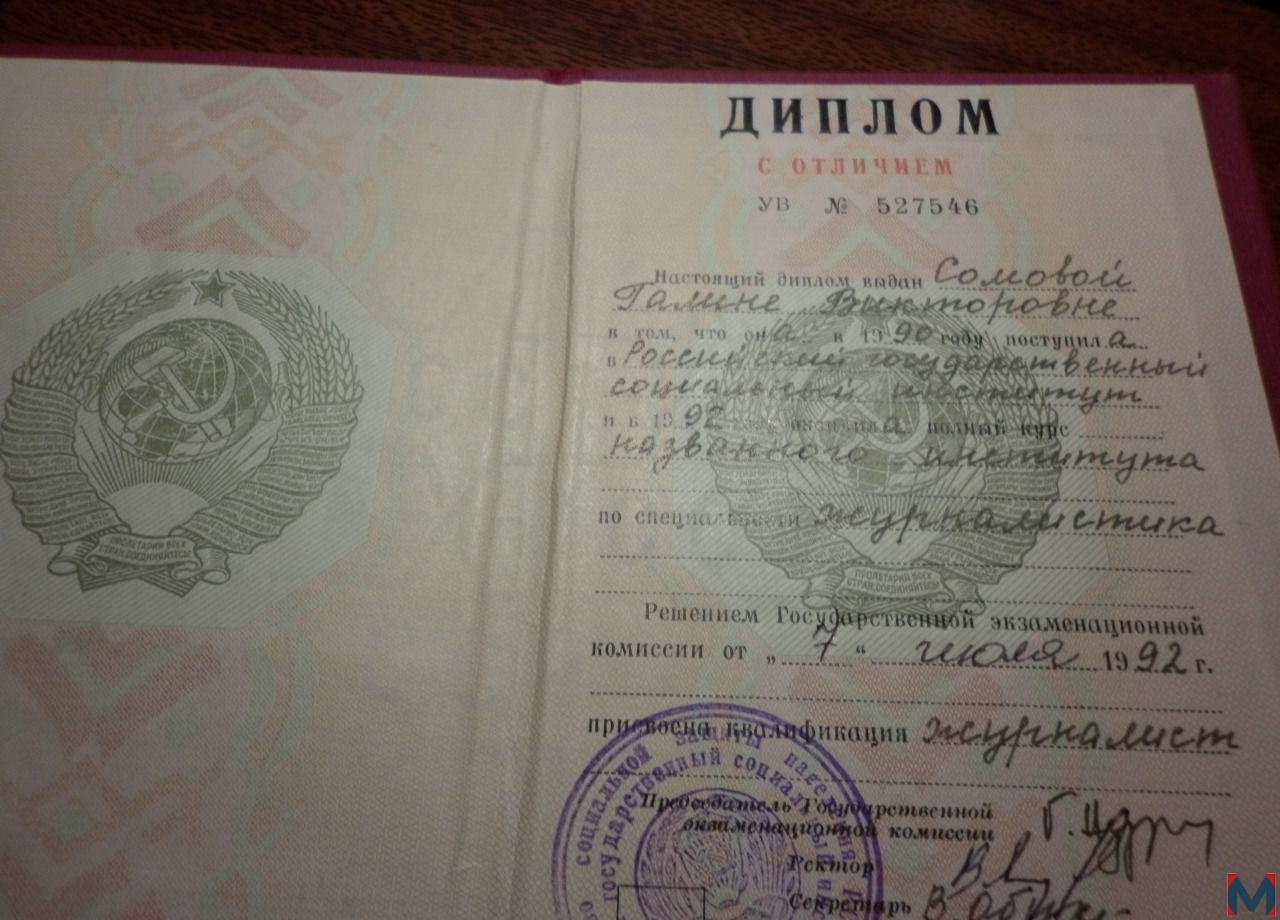 ДИПЛОМ
С ОТЛИЧИЕМ
УВ № 527546
Настоящий диплом выдан Сомовой
Галине Викторовне
в том, что она в 1990 году поступила
в Российский государственный
социальный институт
и в 1992 году окончила полный курс
названного института
по специальности журналистика
Решением Государственной экзаменационной
комиссии от „7“ июля 1992 г.
присвоена квалификация журналист
Председатель Государственной
экзаменационной комиссии
Ректор
Секретарь
социальной защиты населения
государственный социальный
ПРОЛЕТАРИИ ВСЕХ
СТРАН, СОЕДИНЯЙТЕСЬ!
ПРОЛЕТАРИИ ВСЕХ
СТРАН, СОЕДИНЯЙТЕСЬ!
M